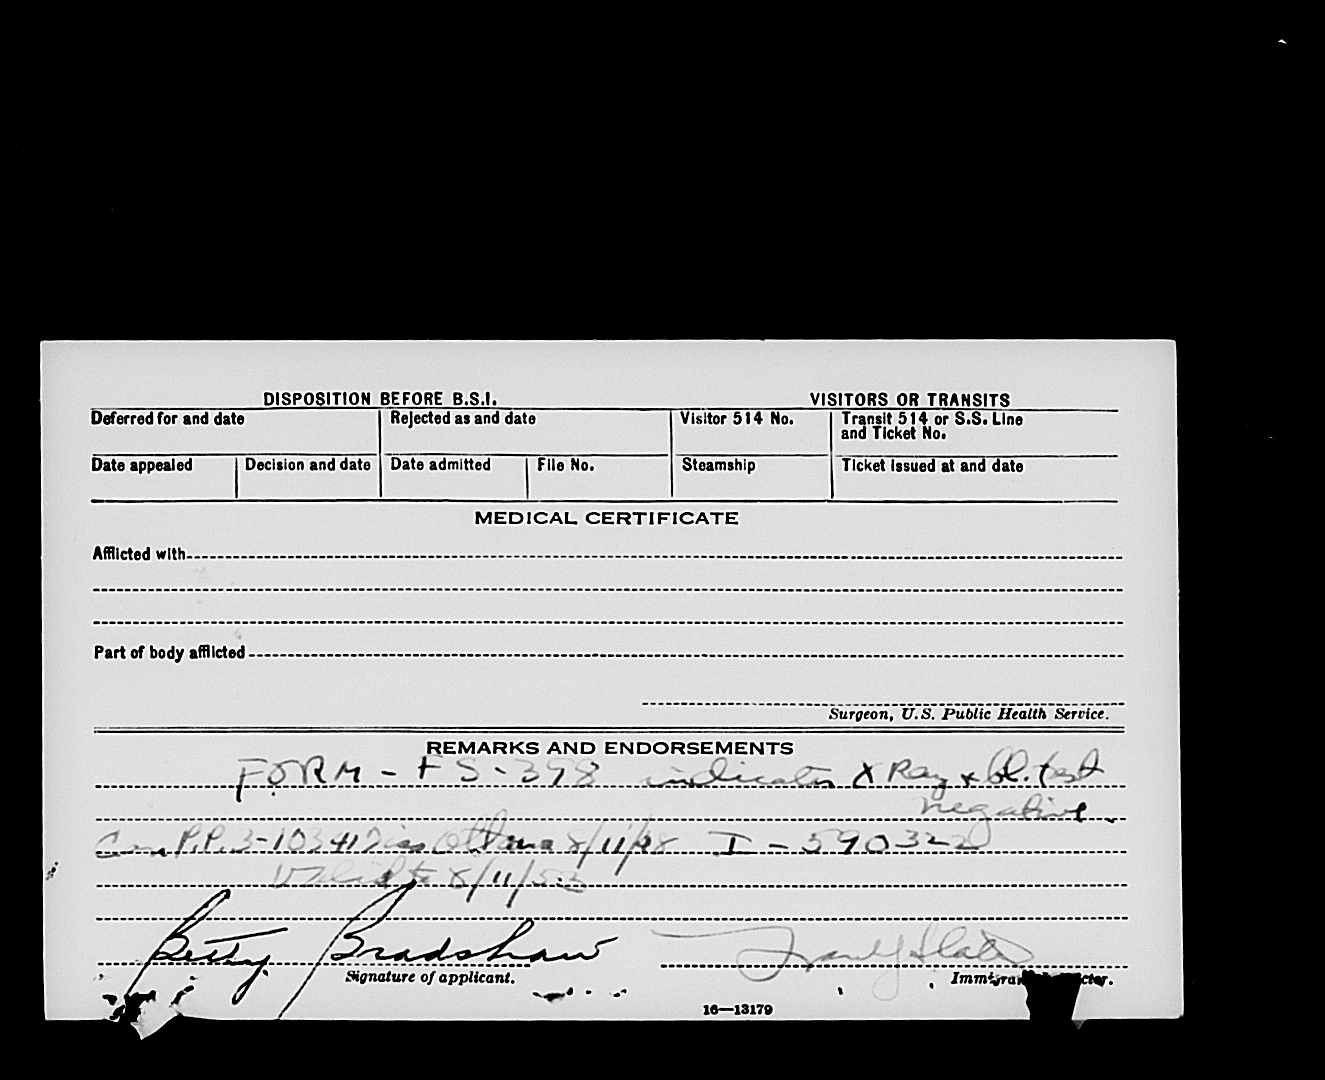 DISPOSITION BEFORE B.S.I. VISITORS OR TRANSITS
Deferred for and date Rejected as and date Visitor 514 No. Transit 514 or S.S. Line and Ticket No.
Date appealed Decision and date Date admitted File No. Steamship Ticket issued at and date
MEDICAL CERTIFICATE
Afflicted with
Part of body afflicted
Surgeon, U.S. Public Health Service.
REMARKS AND ENDORSEMENTS
FORM - FS-398 indicates X Ray & bl. test
negative.
Can P.P. 3-103417 iss Ottawa 8/11/48 I-590322
Valid to 8/11/53
Betty Bradshaw
Signature of applicant.
16—13179